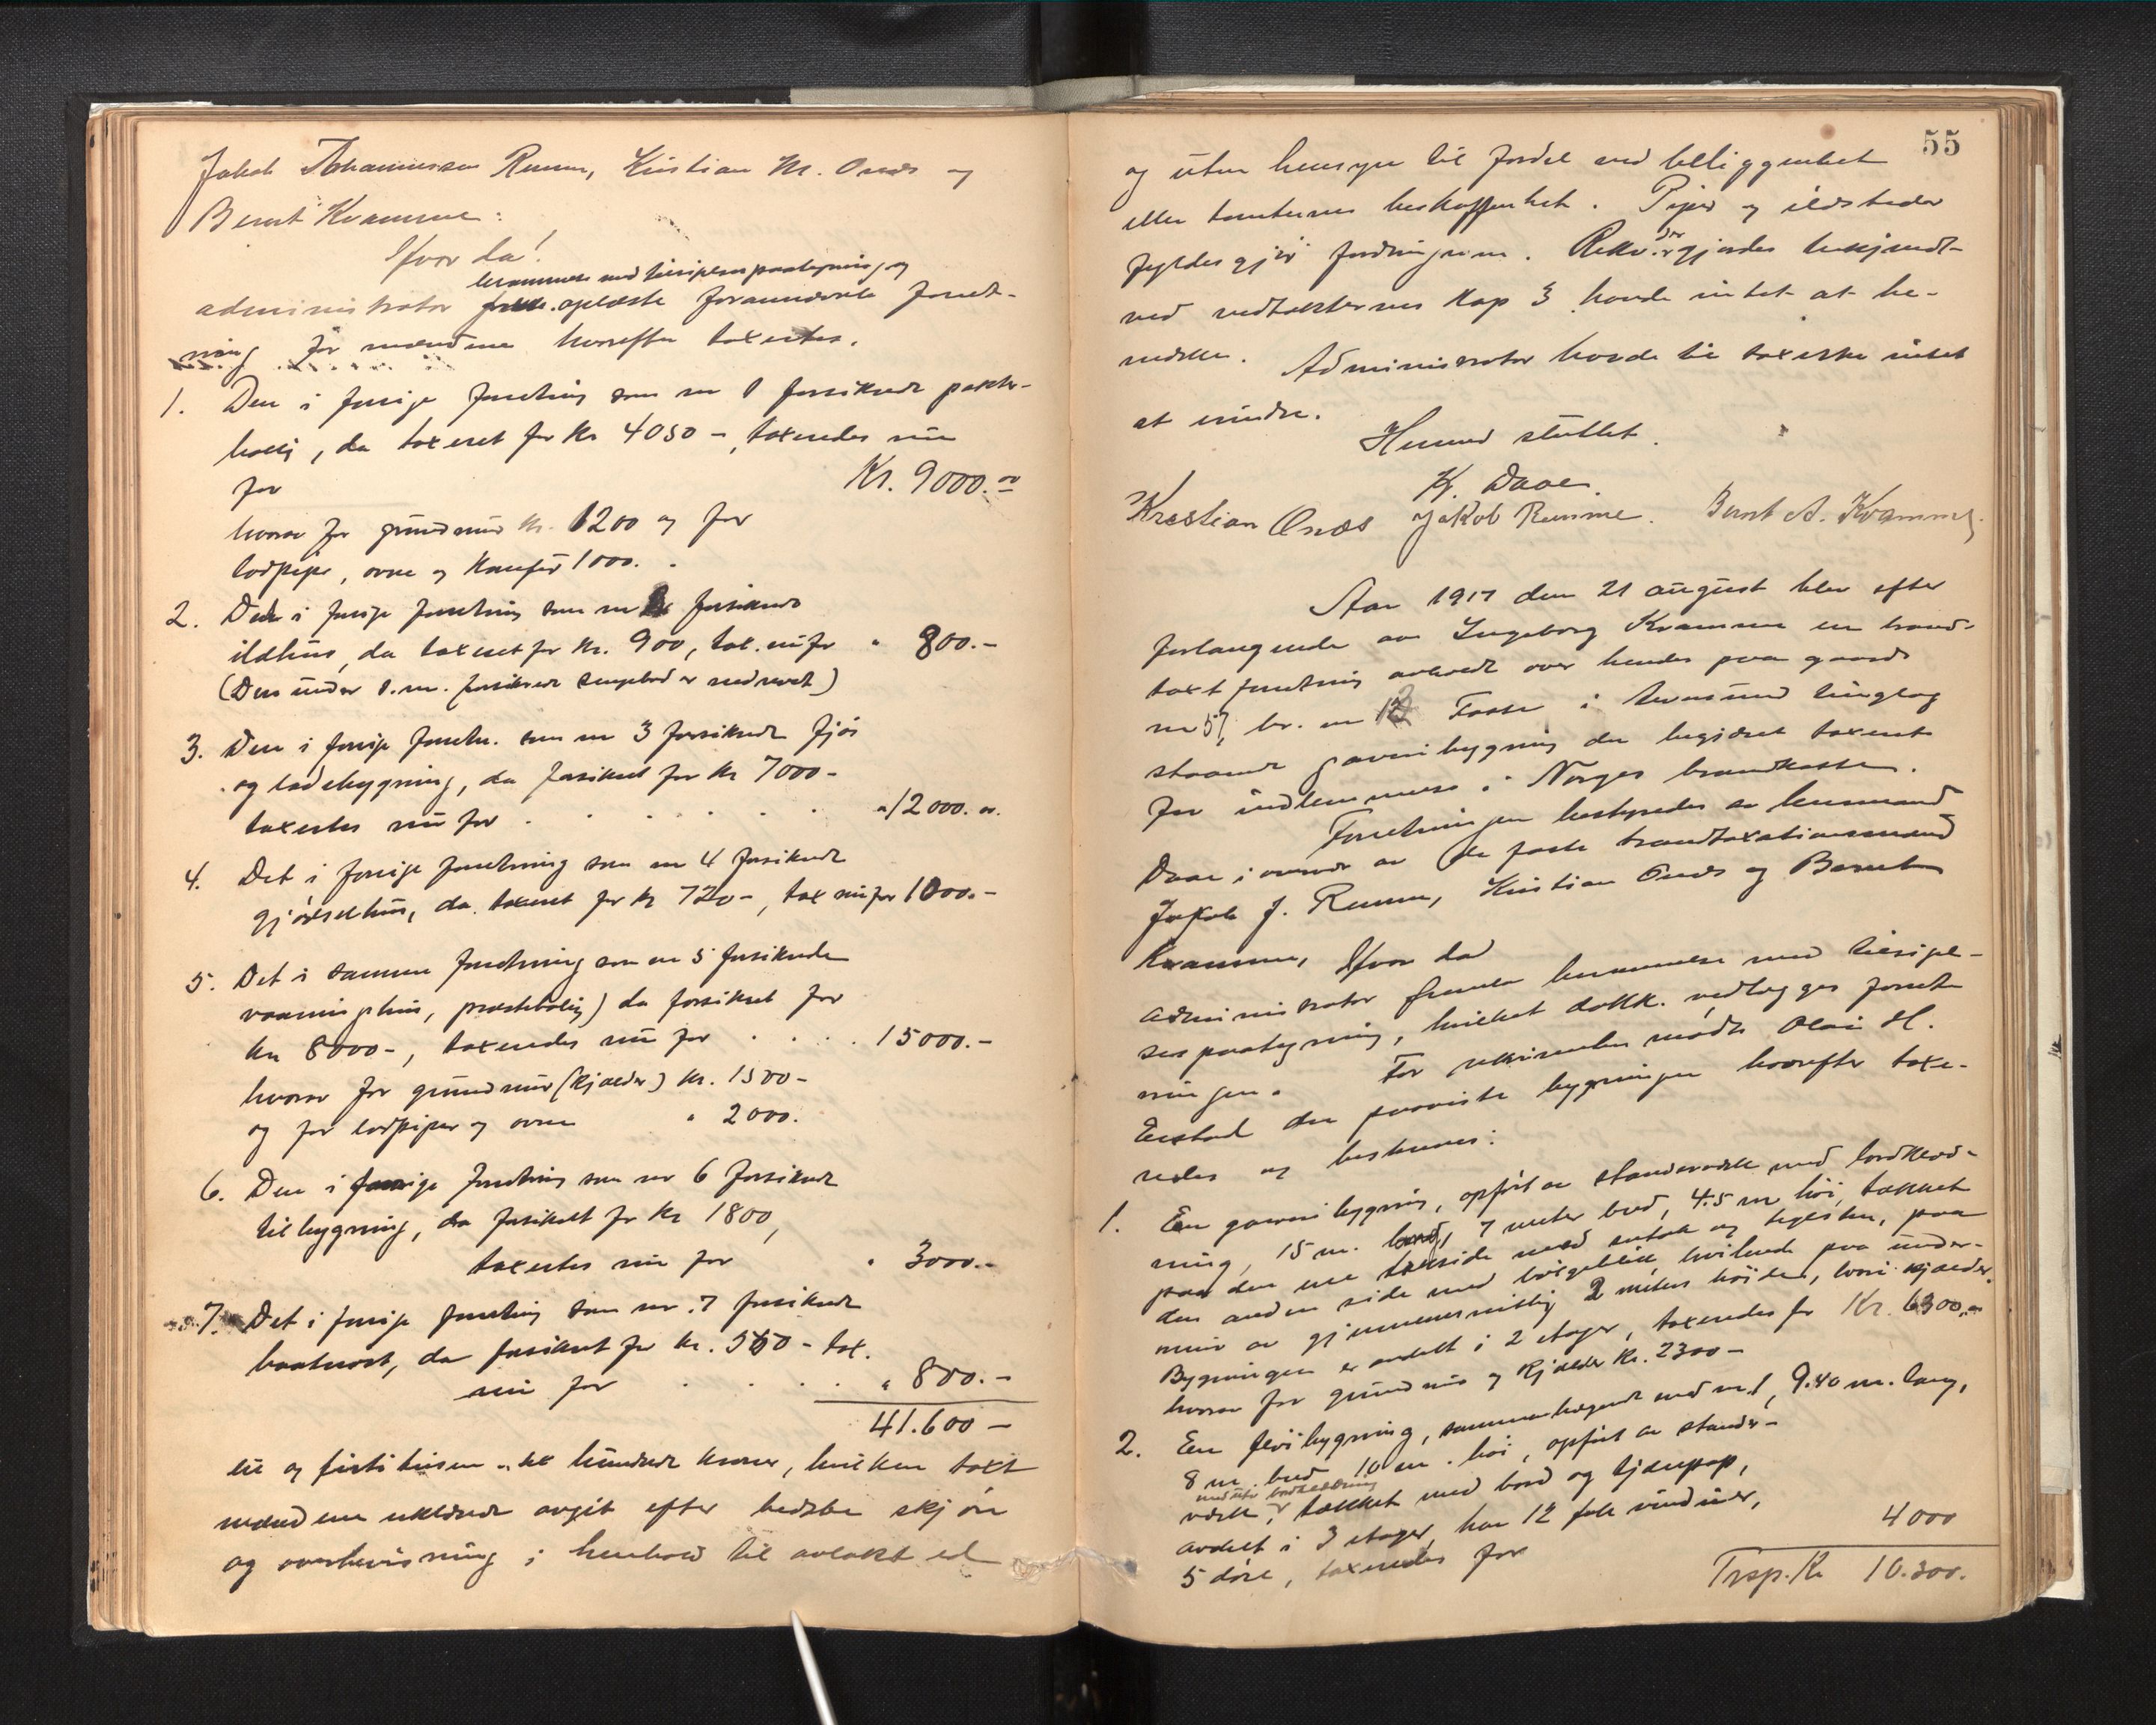 Jakob Johannessen Remme, Kristian M. Onæs og
Bernt Kvamme:
Hvor da!
berammelse med tilsigelsespaategning og
administrator fremla. oplæste forannævnte forret-
ning for mændene hvorefter taxertes.
1. Den i forrige forretning som nr 1 forsikrede pakter-
bolig, da taxeret for Kr 4050 -, taxeredes nu
for Kr. 9000.00
hvorav for grundmur kr. 1200 og for
lodpipe, ovne og Komfyr 1000.
2. Det i forrige forretning som nr 2 forsikrede
ildhus, da taxeret for Kr. 900, tax. nu for " 800.-
(Den under s. nr. forsikrede sengebod er nedrevet)
3. Den i forrige forretn. som nr 3 forsikrede fjös
og ladebygning, da forsikret for Kr 7000 -
taxertes nu for . . . . . . "12000. 00.
4. Det i forrige forretning som nr 4 forsikrede
gjödselhus, da taxeret for kr 720 -, tax nu for 1000.-
5. Det i samme forretning som nr 5 forsikrede
vaaningshus, præstebolig) da forsikret for
kr 8000 -, taxeredes nu for . . . . 15000.-
hvorav for grundmur (kjælder) kr. 1500 -
og for lodpiper og ovne " 2000.
6. Den i forrige forretning som nr 6 forsikrede
tilbygning, da forsikret for Kr 1800,
taxertes nu for " 3000.-
7. Det i forrige forretning som nr. 7 forsikrede
baatnøst, da forsikret for kr. 550 - tax.
nu for . . . . " 800.-
41.600 -
en og firti tusen seks hundrede kroner, hvilken taxt
mændene erklærede avgit efter bedste skjön
og overbevisning i henhold til avlakt ed
55
og uten hensyn til fordel ved beliggenhet
eller tomternes beskaffenhet. Piper og ildsteder
fyldesgjör fordringerne. Rekv. der gjordes bekjendt-
ved vedtækternes Kap 3 havde intet at be-
merke. Administrator havde til taxerne intet
at erindre.
Hermed sluttet.
K. Daae.
Krestian Onæs Jakob Remme. Bernt A. Kvamme.
Aar 1917 den 21 august blev efter
forlangende av Ingeborg Kvamme en brand-
taxtforretning avholdt over hendes paa gaards
nr 57, br. nr 13 Faste i tinglag
staaende garveribygning der begjæret taxeret
for indlemmelse i Norges brandkasse.
Forretningen bestyredes av lensmand
Daae i overvær av de faste brandtaxationsmænd
Jakob J. Remme, Kristian Onæs og Bernt
Kvamme, Hvor da
Administrator fremla berammelse med tilsigel-
sespaategning, hvilket dokk. vedlægges forret-
ningen. For rekvirenten mødte Olai H.
Eiestad der paaviste bygningen hvorefter taxe-
redes og beskreves:
1. En garveribygning, opfört av standerværk med bordklæd-
ning, 15 m. lang, 7 meter bred, 4.5 m höi, tækket
paa den ene takside med sutak og teglsten, paa
den anden side med bölgeblik, hvilende paa under-
mur av gjennemsnittlig 2 meters höide, hvori kjælder.
Bygningen er avdelt i 2 etager, taxeredes for Kr. 6300.00
hvorav for grundmur og kjælder Kr. 2300 -
2. En flöibygning, sammenhengende med nr. 1, 9.40 m. lang,
8 m. bred, 10 m. höi, opfört av stander-
med ytre bordklædning
værk, tækket med bord og tjærepap,
avdelt i 3 etager, har 12 fak vinduer,
5 döre, taxeredes for 4000
Trsp. Kr 10.300.